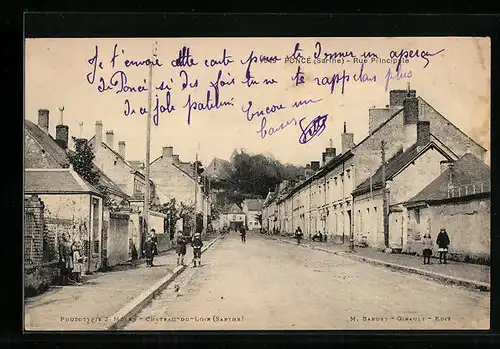 PONCÉ (Sarthe) - Rue Principale
Je t'envoie cette carte pour te donner un aperçu
de Poncé si des fois tu ne te rappelais plus
du joli patelin Encore un
baiser
PHOTOTYPIE J. - CHATEAU-DU-LOIR (SARTHE)
M. BARDET - GIRAULT - EDIT